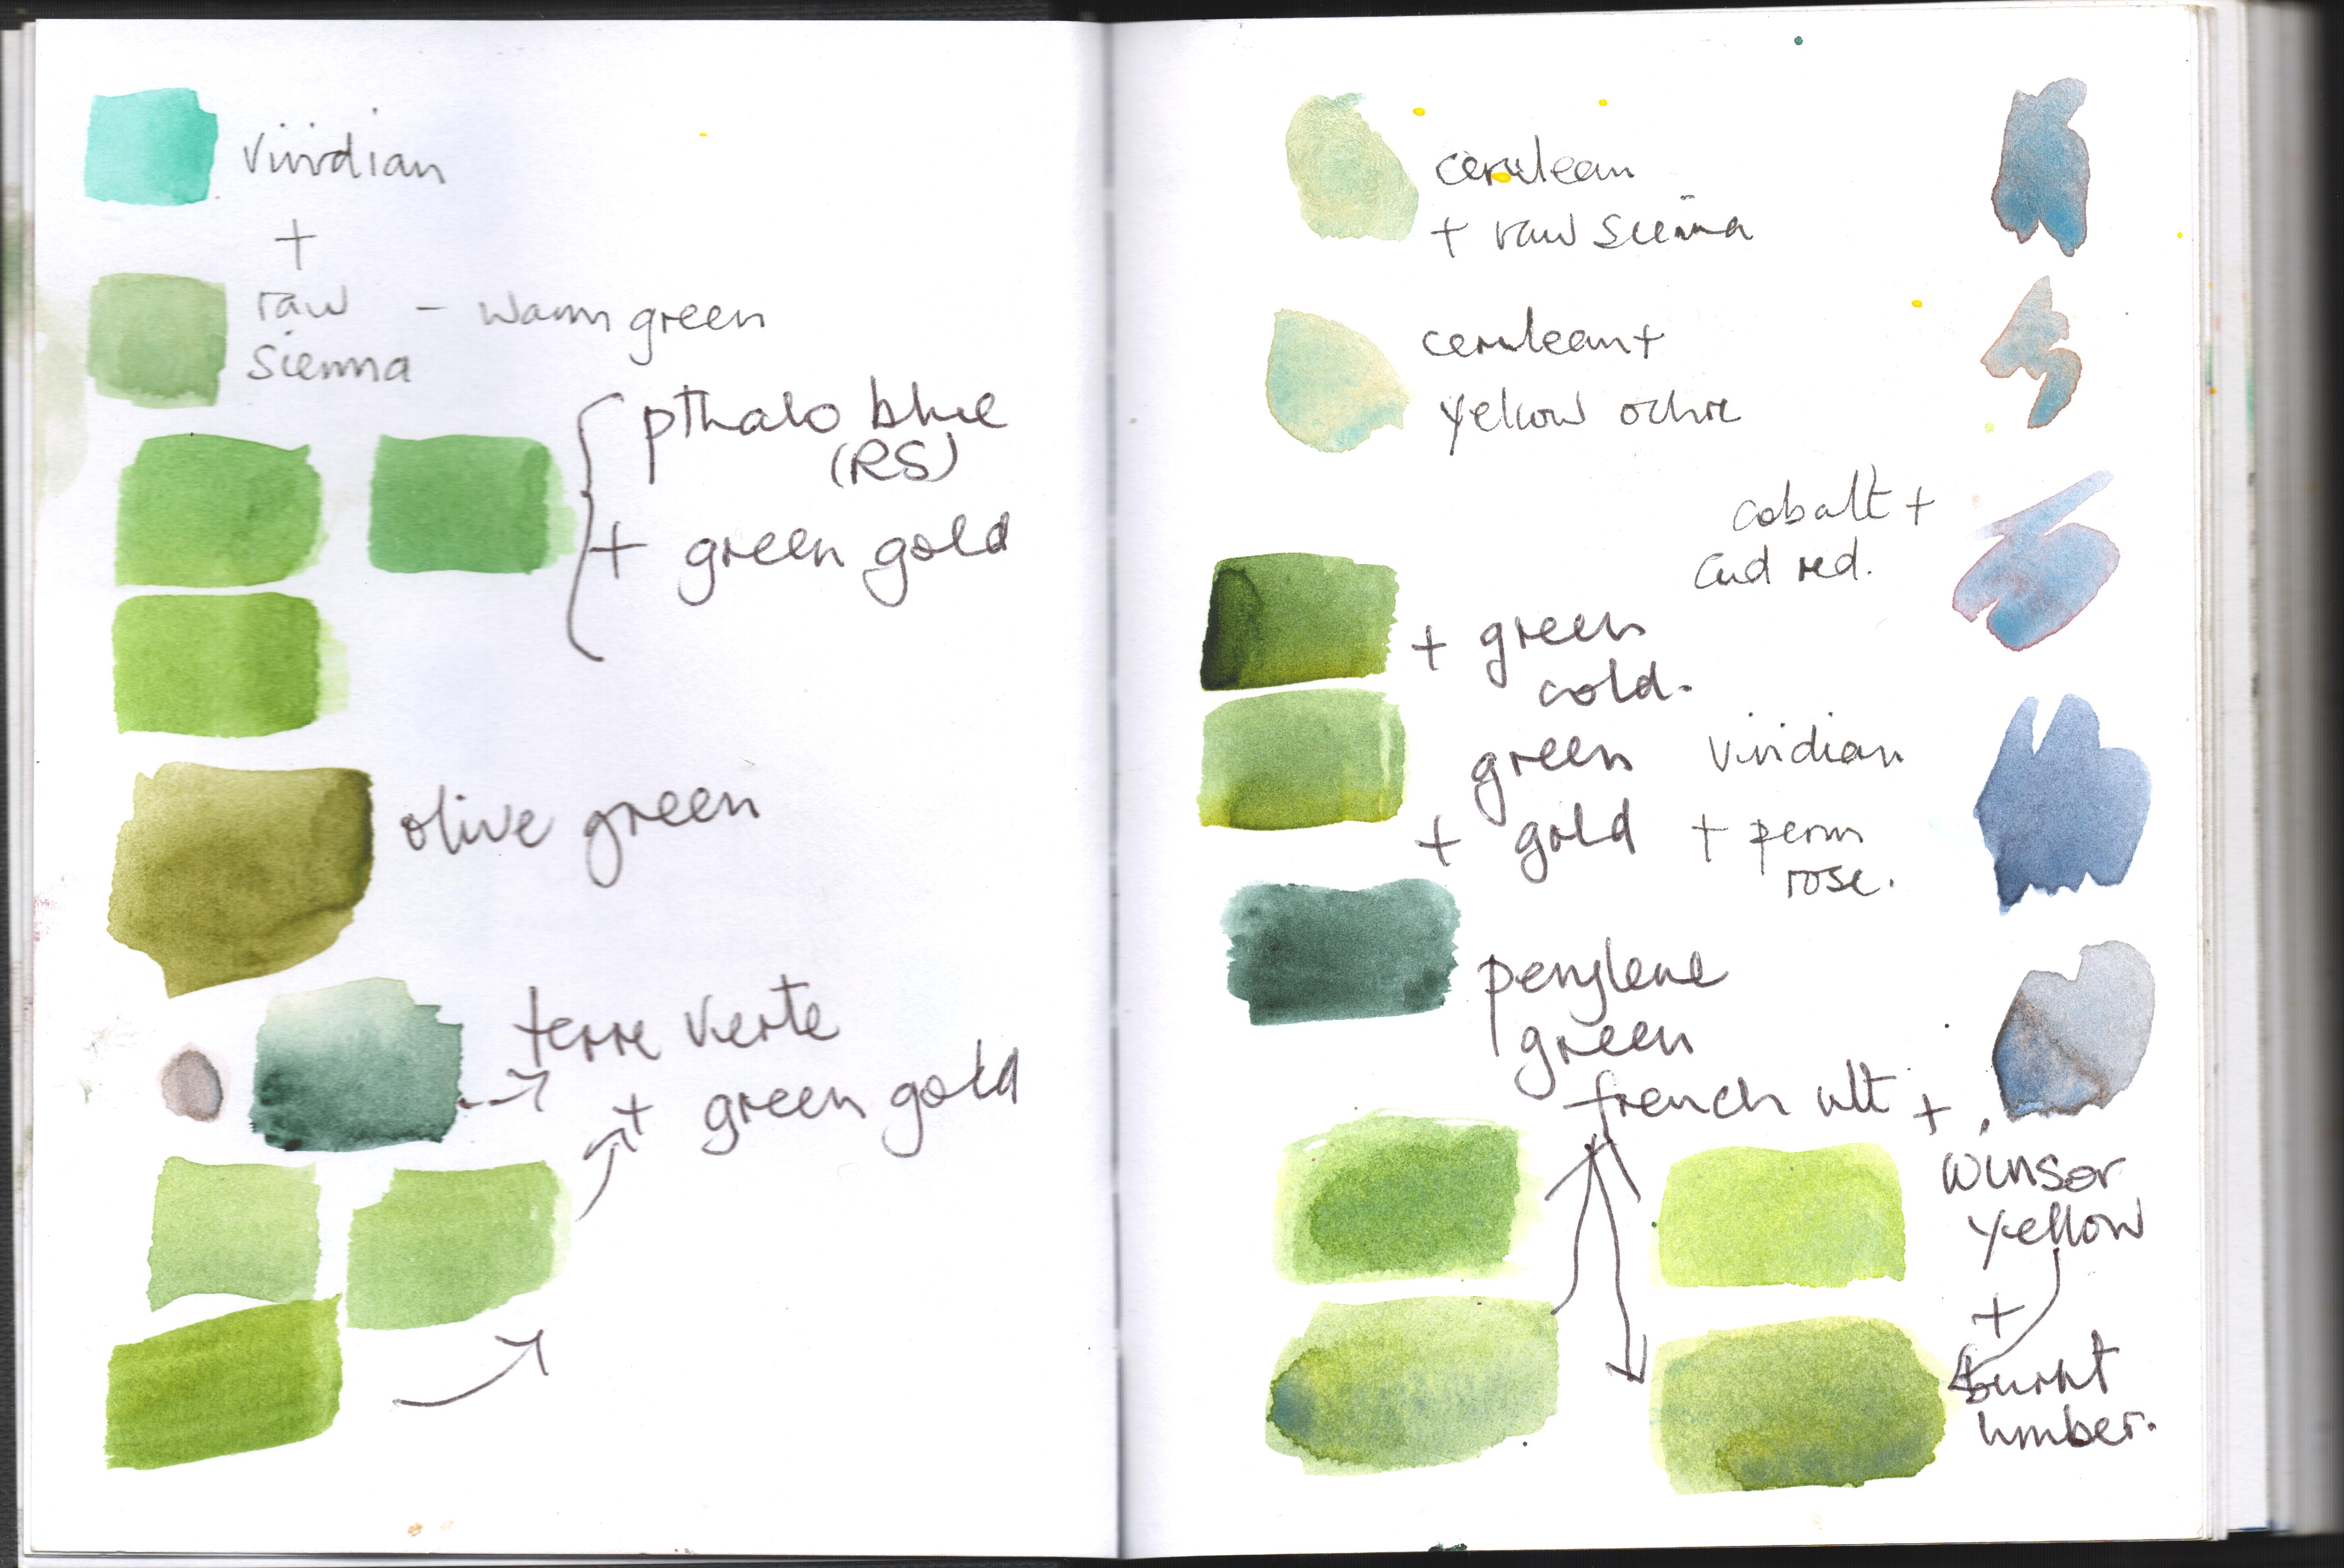 viridian
+
raw - warm green
sienna
pthalo blue
(RS)
+ green gold
olive green
terre verte
+ green gold
cerulean
+ raw sienna
cerulean +
yellow ochre
cobalt +
cad red.
+ green
cold.
green
+ gold
viridian
+ perm
rose.
perylene
green
french ult +
winsor
yellow
+
burnt
umber.